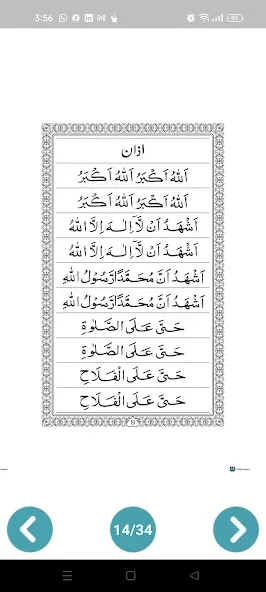 3:56
45
اذان
اَللّٰهُ اَكْبَرُ اَللّٰهُ اَكْبَرُ
اَللّٰهُ اَكْبَرُ اَللّٰهُ اَكْبَرُ
اَشْهَدُ اَنْ لَّآ اِلٰهَ اِلَّا اللّٰهُ
اَشْهَدُ اَنْ لَّآ اِلٰهَ اِلَّا اللّٰهُ
اَشْهَدُ اَنَّ مُحَمَّدًا رَّسُوْلُ اللّٰهِ
اَشْهَدُ اَنَّ مُحَمَّدًا رَّسُوْلُ اللّٰهِ
حَىَّ عَلَى الصَّلٰوةِ
حَىَّ عَلَى الصَّلٰوةِ
حَىَّ عَلَى الْفَلَاحِ
حَىَّ عَلَى الْفَلَاحِ
14/34